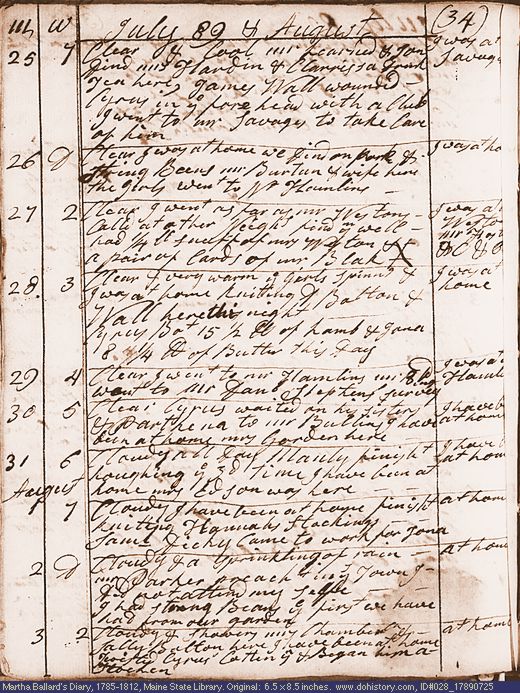 m w July 89 & August (34)
25 7 Clear & Cool mr Learned & Jona I was at
Dind mrs Hardin & Clarrissa Savages
Tea here, James Wall wounded
Cyrus in ye fore head with a Club
I went to mr Savages to take Care
of him
26 D Clear I was at home we Dind on pork & I was at ho
String Beens mr Burton & wife here
the girls went to Mr Hamlins
27 2 Clear I went as far as mr Westons I was at
Calld at other neighbours Weston
had ¼ lb snuff of mr Weston &
a pair of Cards of mr Blak X
28 3 Clear & very warm ye girls spinns & I was at
I was at home knitting Dr Batton & home
Wall here this night
Cyrus Bot 15 ½ lb of Lamb & Jona
8 ¼ lb of Butter this Day
29 4 Clear I went to mr Hamlins I was at
went to Mr Danl Stephens Hamli
30 5 Clear Cyrus waited on his sisters I have b
& Parthena to mr Bullins I have at home
been at home mrs Gorden here
31 6 Cloudy all Day Manly finisht I have b
houghing ye 3d time I have been at at hom
home mrs Edson was here
August
1 7 Cloudy I have been at home finisht at home
knitting Hannahs Stockings
Saml Dickey Came to work for Jona
2 D Cloudy & a Sprinkling of rain at home
mr Parker preach in ye Town I
Did not attend my selfe
I had strong Beens ye first we have
had from our garden
3 2 Cloudy & showers mrs Chamberlin & at home
Sally Batton here I have been at home
Cyrus Coting & Began him a
Martha Ballard's Diary, 1785-1812, Maine State Library. Original: 6.5 x 8.5 inches. www.dohistory.com, ID#028_17890725